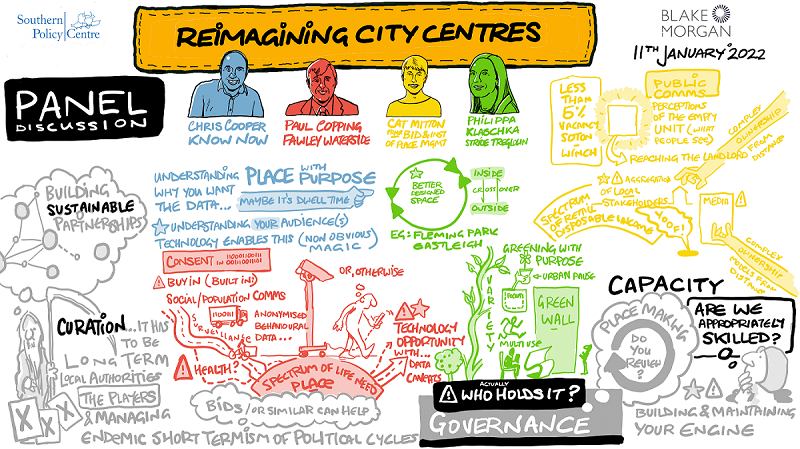 Southern
Policy Centre
REIMAGINING CITY CENTRES
BLAKE
MORGAN
11TH JANUARY 2022
PANEL
DISCUSSION
CHRIS COOPER
KNOW NOW
PAUL COPPING
FAWLEY WATERSIDE
CAT MITTON
BID & INST
OF PLACE MGMT
PHILIPPA
KLASCHKA
STRIDE TREGLOWN
LESS
THAN
6%
VACANCY
SOTON
WINCH
PUBLIC
COMMS
PERCEPTIONS
OF THE EMPTY
UNIT (WHAT
PEOPLE SEE)
REACHING THE LANDLORD
COMPLEX
OWNERSHIP
FROM
DISTANCE
AGGREGATION
OF LOCAL
STAKEHOLDERS
SPECTRUM
OF RETAIL
DISPOSABLE INCOME
MEDIA
COMPLEX
OWNERSHIP
MODELS FROM
DISTANCE
UNDERSTANDING
WHY YOU WANT
THE DATA...
PLACE WITH
PURPOSE
MAYBE IT'S DWELL TIME
UNDERSTANDING YOUR AUDIENCE(S)
TECHNOLOGY ENABLES THIS (NON OBVIOUS)
MAGIC
BETTER
DESIGNED
SPACE
INSIDE
CROSS OVER
OUTSIDE
EG: FLEMING PARK
EASTLEIGH
BUILDING
SUSTAINABLE
PARTNERSHIPS
CONSENT
BUY IN (BUILT IN)
SOCIAL/POPULATION COMMS
SURVEILLANCE
ANONYMISED
BEHAVIOURAL
DATA...
HEALTH?
OR, OTHERWISE
TECHNOLOGY
OPPORTUNITY
WITH...
DATA
CAVEATS
SPECTRUM OF LIFE NEED
PLACE
GREENING WITH
PURPOSE
URBAN PAUSE
VARIETY
MULTI USE
GREEN
WALL
CURATION... IT HAS
TO BE
LONG TERM
LOCAL AUTHORITIES
THE PLAYERS
& MANAGING
ENDEMIC SHORT TERMISM OF POLITICAL CYCLES
BIDS/OR SIMILAR CAN HELP
ACTUALLY
WHO HOLDS IT?
GOVERNANCE
CAPACITY
PLACE MAKING
DO
YOU
REVIEW?
ARE WE
APPROPRIATELY
SKILLED?
BUILDING & MAINTAINING
YOUR ENGINE